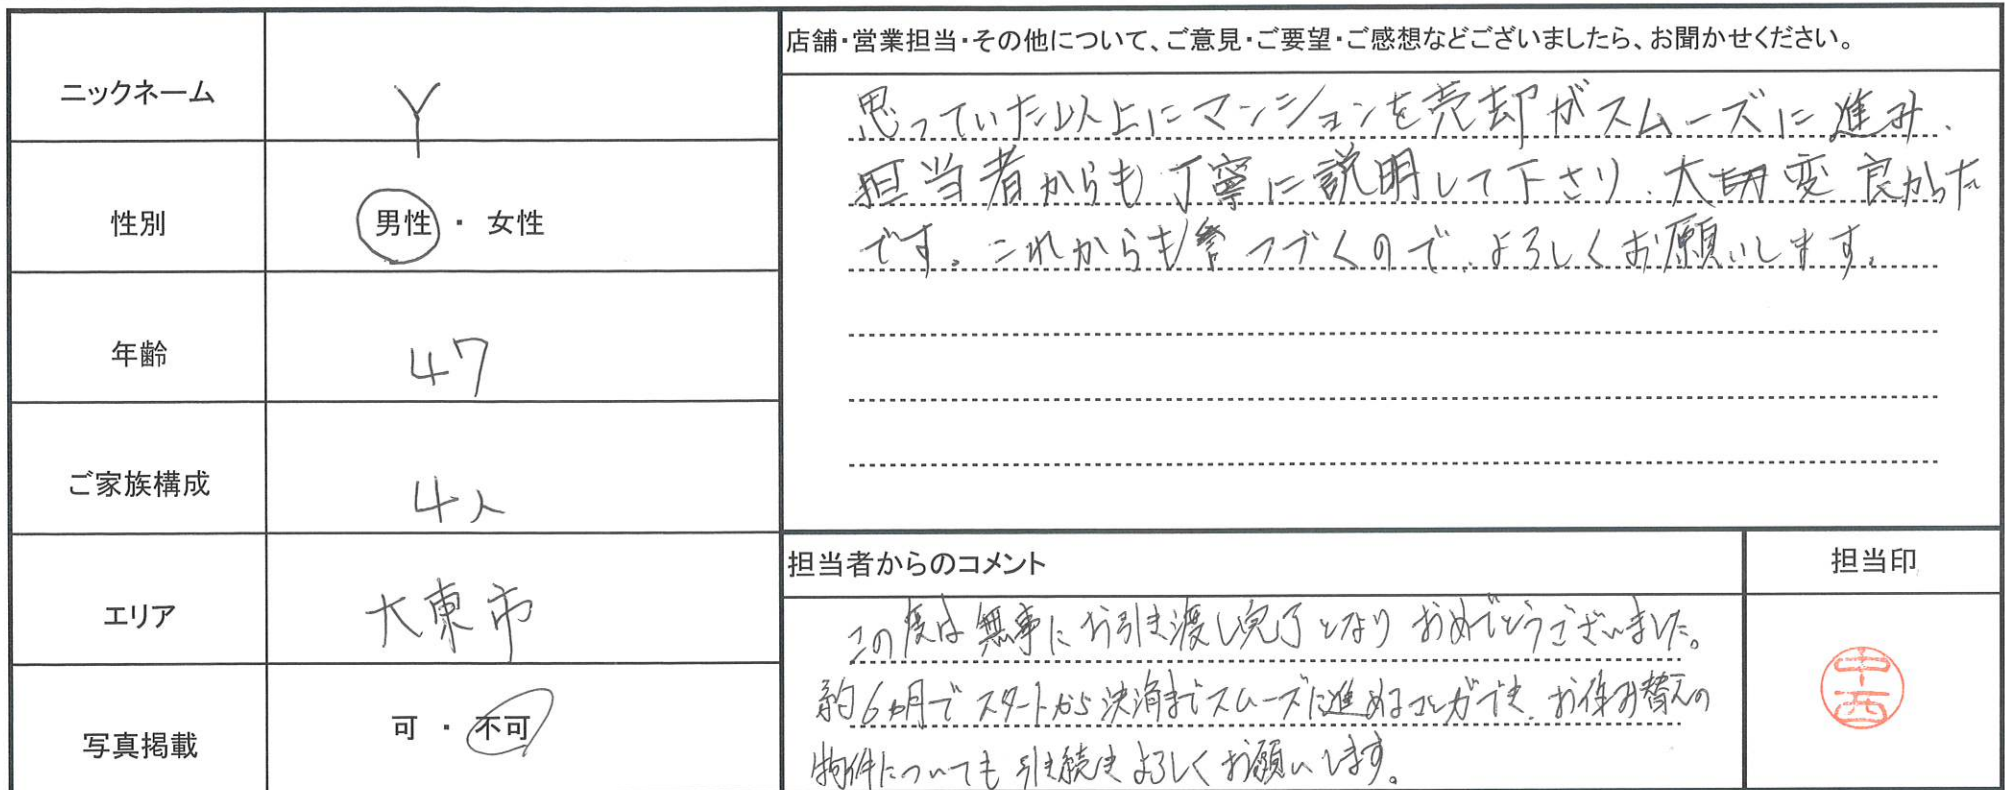 ニックネーム
Y
性別
男性 ・ 女性
年齢
47
ご家族構成
4人
エリア
大東市
写真掲載
可 ・ 不可
店舗・営業担当・その他について、ご意見・ご要望・ご感想などございましたら、お聞かせください。
思っていた以上にマンションを売却がスムーズに進み、
担当者からも丁寧に説明して下さり、大変良かった
です。これからもつづくので、よろしくお願いします。
担当者からのコメント
この度は無事にお引き渡し完了となりおめでとうございました。
約6ヵ月でスタートから決済までスムーズに進めることができ、お住み替えの
物件についても引き続きよろしくお願いします。
担当印
中西